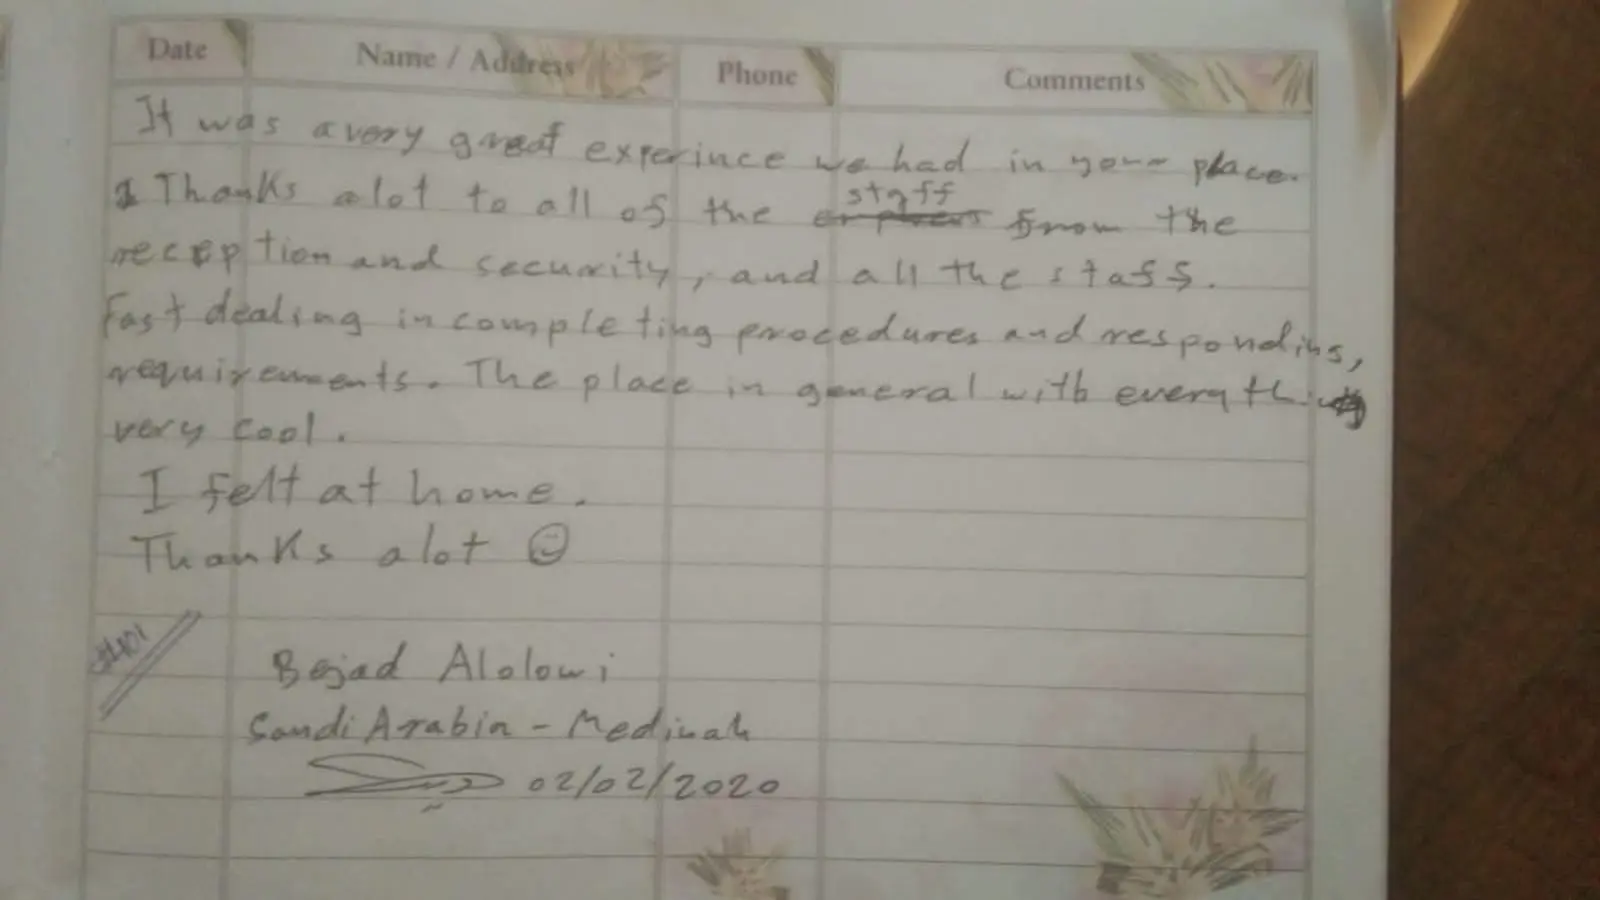 Date Name / Address Phone Comments
It was a very great experince we had in your place.
Thanks alot to all of the staff from the
reception and security, and all the staff.
Fast dealing in completing procedures and responding,
requirements. The place in general with everything
very cool.
I felt at home.
Thanks alot ☺
#401
Bejad Alolowi
Saudi Arabia - Medinah
02/02/2020